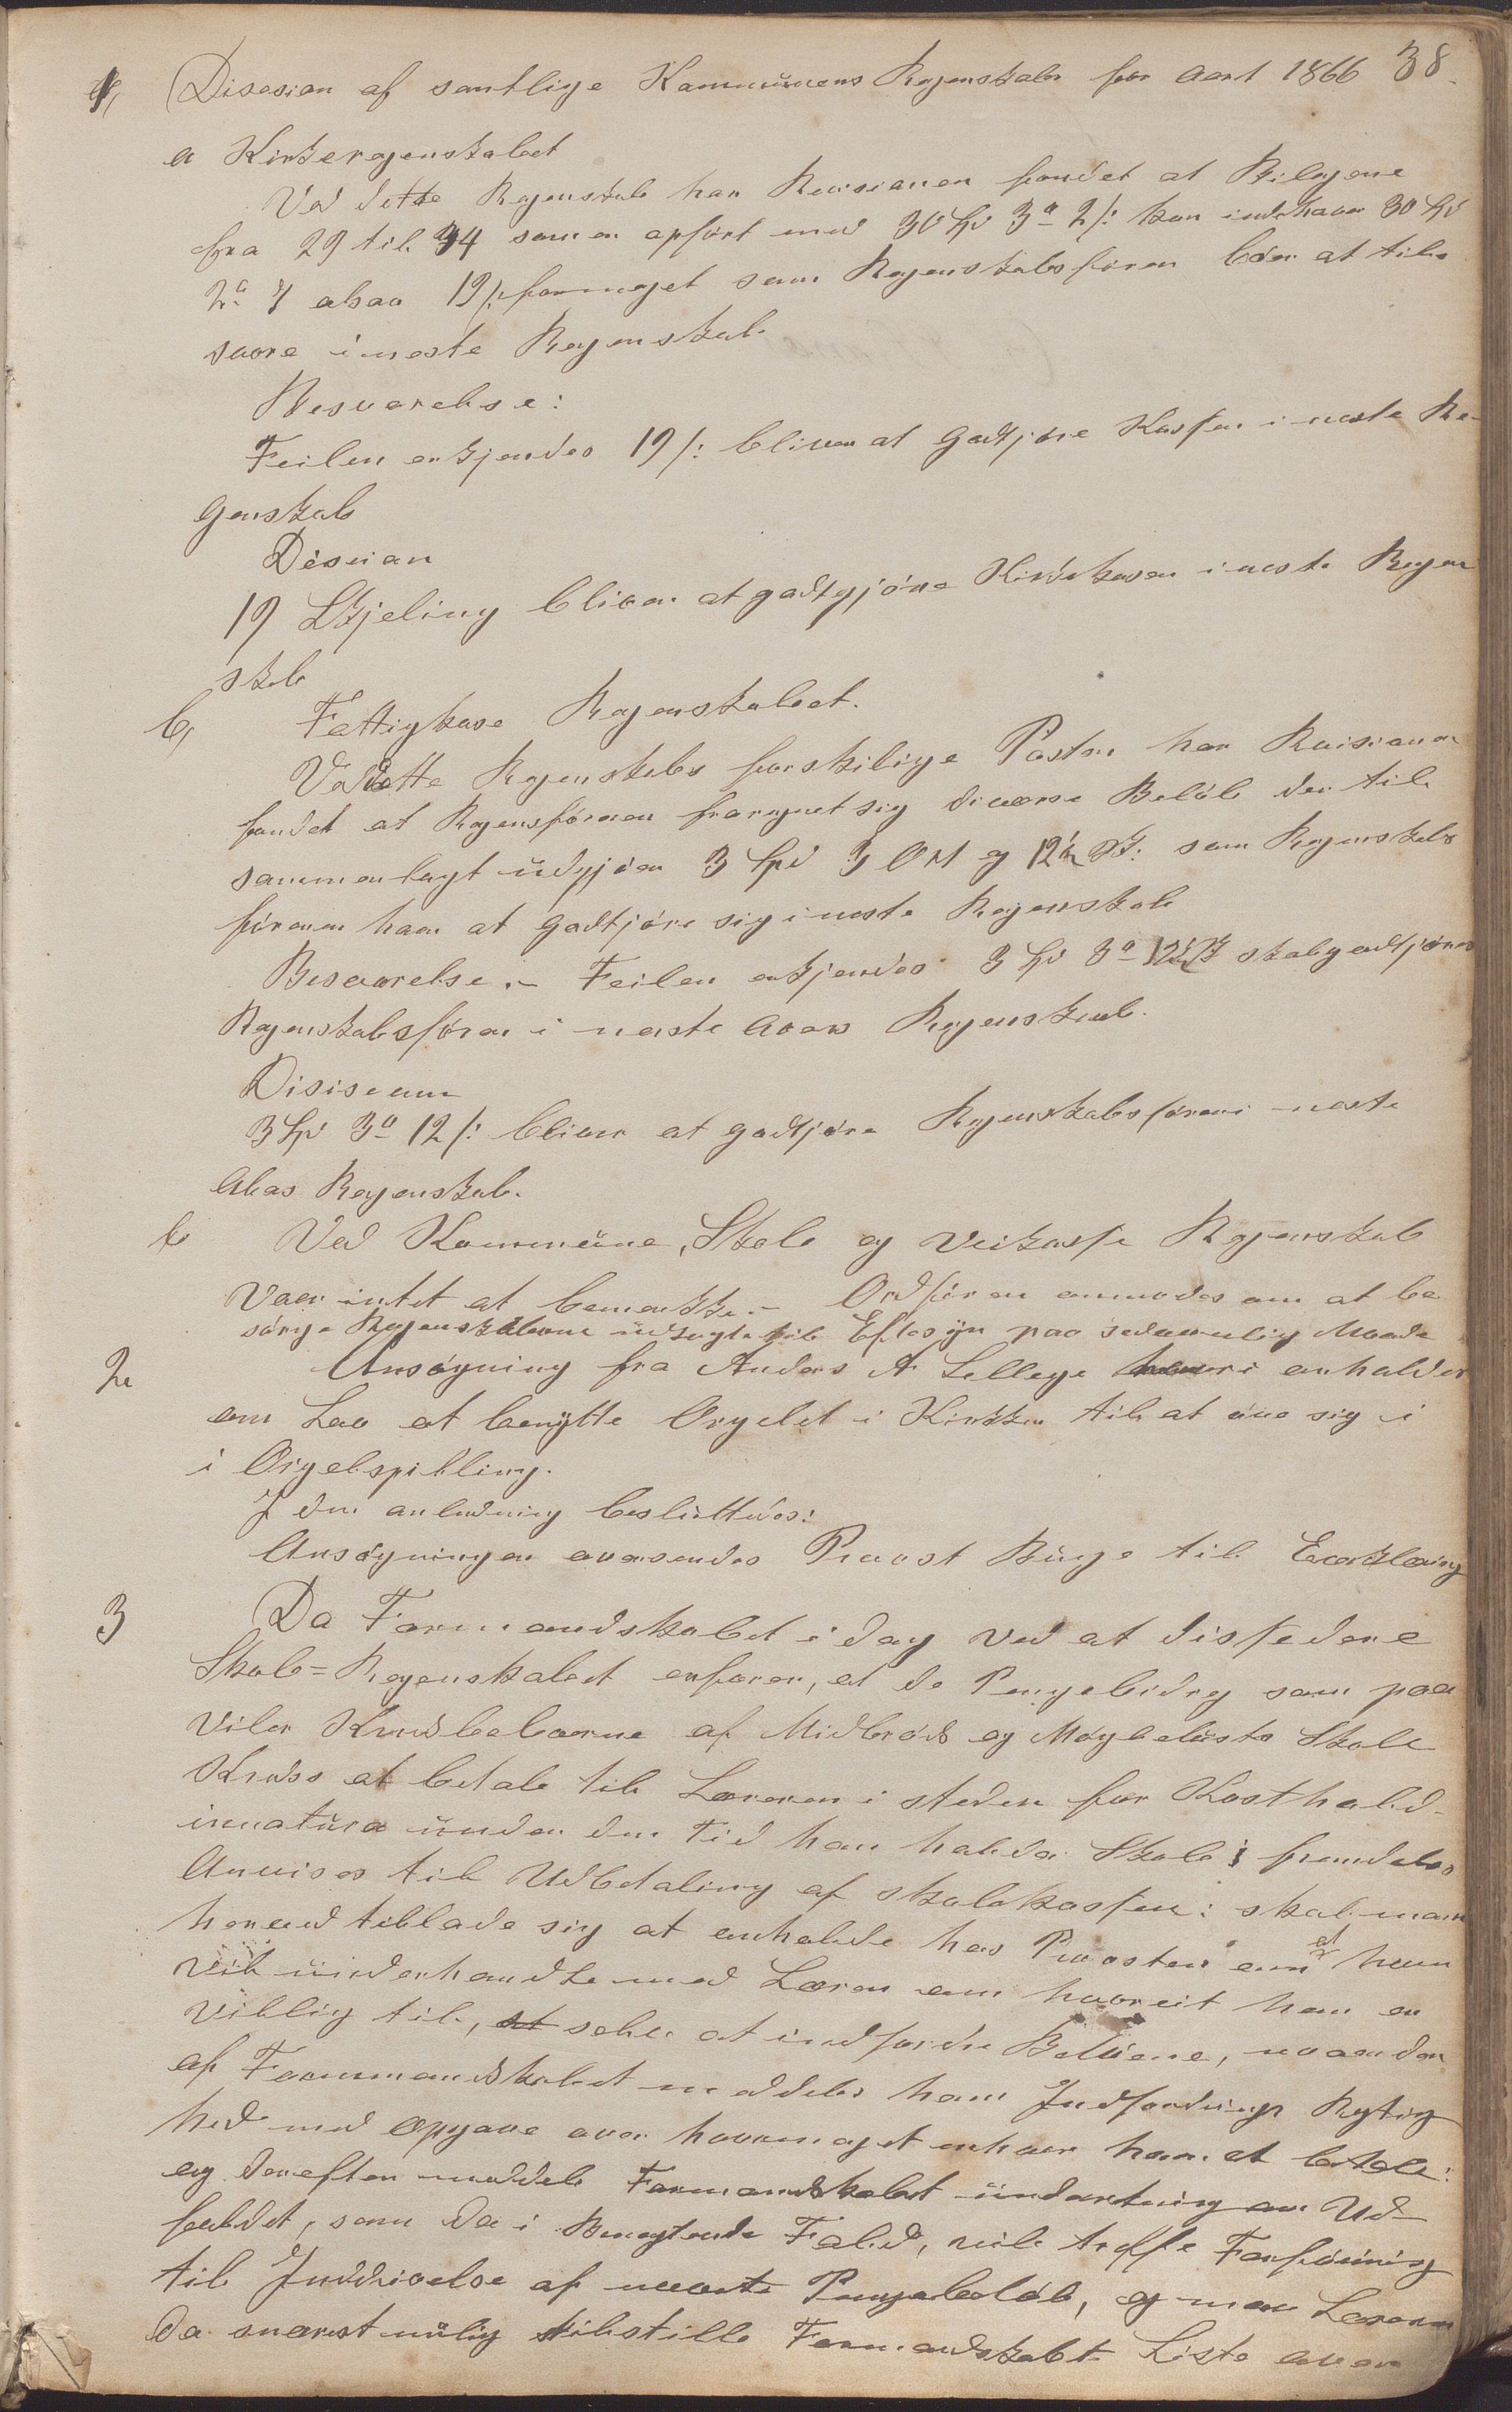 38.
1, Disesion af samtlige Kammunens Regenskabr for aart 1866
a Kirkeregenskabet
Ved dette Regenskab har Revisionen fondet at Bilegene
fra 29 til 34 som er opført med 30 Spd 3 ort 2 s: kon indehaver 30 Spd
2 ort 7 alsaa 19 s: formeget som Regenskabsføren bør at tils
svare i neste Regenskab
Besvarelse:
Feilen erkjendes 19 s: bliver at godtjøre Kassen i neste Re-
genskab
Desesian
19 Skjeling bliver at godtgjøre Kirkekasen i neste Regen
skab
b, Fattigkase Regenskabet.
Ved dette Regenskabs forskilige Poster har Revisionen
fondet at Regensføreren fraregnet sig diverse Beløb der til
sammenlagt udgjøer 3 Spd 3 Ort og 12½ sk: som Regenskabs
føreren haer at godtjøre sig i neste Regenskab
Besvarelse. - Feilen erkjendes 3 Spd 3 ort 12½ sk skal godtjøres
Regenskabsføren i neste Aars Regenskab.
Disiseum
3 Spd 3 ort 12 s: bliver at godtjøre Regenskabsføren i neste
Aars Regenskab.
c Ved Kommune, Skole og Veikasse Regenskab
Vaer intet at bemerkke. - Ordføren anmodes om at be
sørge Regenskaberne udlagte til Eftersyn paa sedvanlig Maade
2 Ansøgning fra Anders A Lellege hvori anholdes
om Lov at benytte Orgelet i Kirkken til at øve sig i
i Orgelspilling.
I den anledning besluttedes:
Ansøgningen oversendes Provst Burge til Eerklæring
3 Da Formandskabet i dag ved at disssedere
Skole=Regenskabet erfarer, at de Pengebidrag som paa
viler Kredsbeboerne af Midbrøds og Møgbelusts Skole
Kreds at betale til Læreren i steden for Kosthold
innatura under den Tid han holder Skole i fremdeles
Anvises til Udbetaling af skolekassen: skal man
herved tillade sig at anholde hos Provsten om at han
vil underhandle med Læren om hvorvit han er
villig til, at selv at indfordre Beløene, naar der
af Foormandskabet meddeles ham Indfordrings Regtig
hed med Opgave over hvormeget enhver haer at betale:
og derefter meddele Formandskabet underretning om Ud-
faldet, som da i Benegtende Fald, vil treffe Forføining
til Inddrivelse af nevnte Pengebeløb, og maa Læreren
da snarest mulig tilstille Formandskabet Liste over